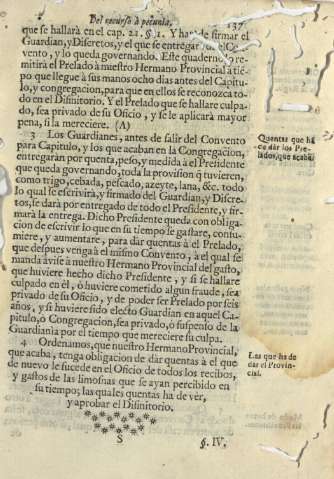 Del recurso à pecunia. 137
que se hallarà en el cap. 21. §. 1. Y han de firmar el
Guardian, y Discretos, y el que se entregar
vento, y lo queda governando. Este quaderno re-
mitirà el Prelado à nuestro Hermano Provincial à tie-
po que llegue à sus manos ocho dias antes del Capitu-
lo, y congregacion, para que en ellos se reconozca to-
do en el Difinitorio. Y el Prelado que se hallare culpa-
do, sea privado de su Oficio, y se le aplicarà mayor
pena, si la mereciere. (A)
3 Los Guardianes, antes de salir del Convento
para Capitulo, y los que acaban en la Congregacion,
entregaràn por quenta, peso, y medida à el Presidente
que queda governando, toda la provision q̃ tuvieren,
como trigo, cebada, pescado, azeyte, lana, &c. todo
lo qual se escrivirà, y firmado del Guardian, y Discre-
tos, se darà por entregado de todo el Presidente, y fir-
marà la entrega. Dicho Presidente queda con obliga-
cion de escrivir lo que en su tiempo se gastare, consu-
miere, y aumentare, para dar quentas à el Prelado,
que despues venga à el mismo Convento, à el qual se
manda avise à nuestro Hermano Provincial del gasto,
que huviere hecho dicho Presidente, y si se hallare
culpado en èl, ò huviere cometido algun fraude, sea
privado de su Oficio, y de poder ser Prelado por seis
años, y si huviere sido electo Guardian en aquel Ca-
pitulo, ò Congregacion, sea privado, ò suspenso de la
Guardiania por el tiempo que mereciere su culpa.
4 Ordenamos, que nuestro Hermano Provincial,
que acaba, tenga obligacion de dar quentas à el que
de nuevo le sucede en el Oficio de todos los recibos,
y gastos de las limosnas que se ayan percibido en
su tiempo; las quales quentas ha de vèr,
y aprobar el Difinitorio.
S §. IV.
Quentas que hã
de dàr los Pre-
lados, que acabã.
Las que ha de
dar el Provin-
cial.